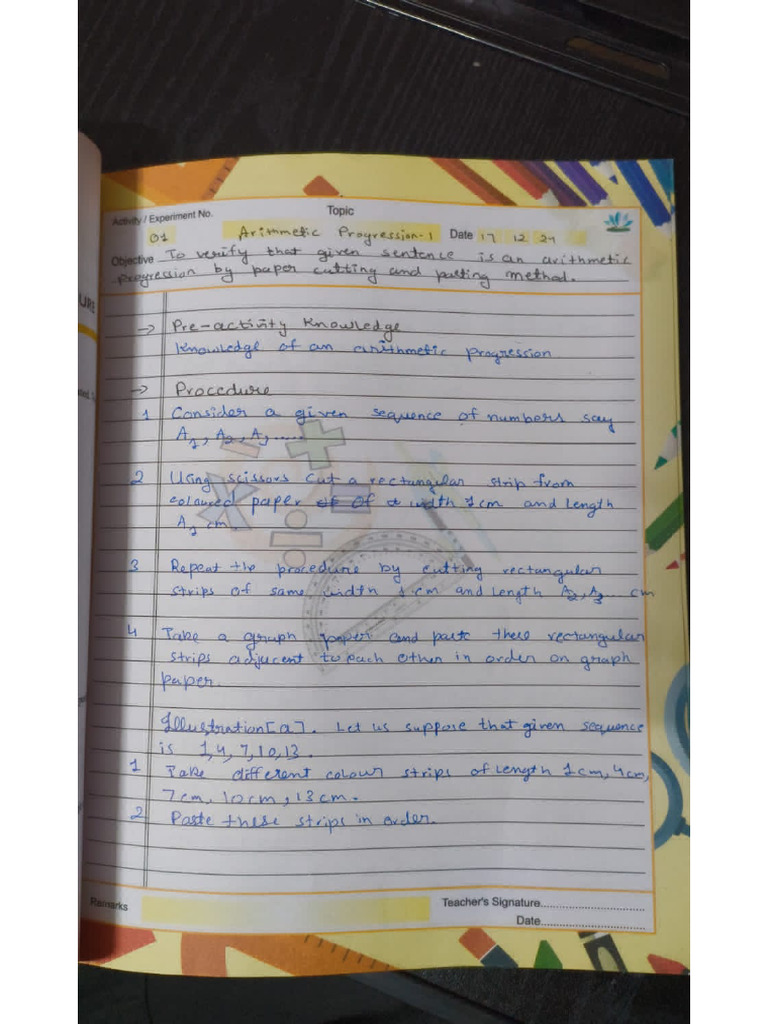 Topic
Activity / Experiment No.
01 Arithmetic Progression-1 Date 17 12 24
Objective To verify that given sentence is an arithmetic
progression by paper cutting and pasting method.
→ Pre-activity Knowledge
Knowledge of an arithmetic progression
→ Procedure
1 Consider a given sequence of numbers say
A1, A2, A, .....
2 Using scissors cut a rectangular strip from
coloured paper of width 1cm and length
A1 cm
3 Repeat the procedure by cutting rectangular
strips of same width 1 cm and length A2, A3 ... cm
4 Take a graph paper and paste these rectangular
strips adjucent to each other in order on graph
paper.
Illustration [a]. Let us suppose that given sequence
is 1,4,7,10,13.
1 Take different colour strips of length 1cm, 4cm,
7cm, 10cm, 13cm.
2 Paste these strips in order.
Remarks
Teacher's Signature..............................
Date..............................
URE